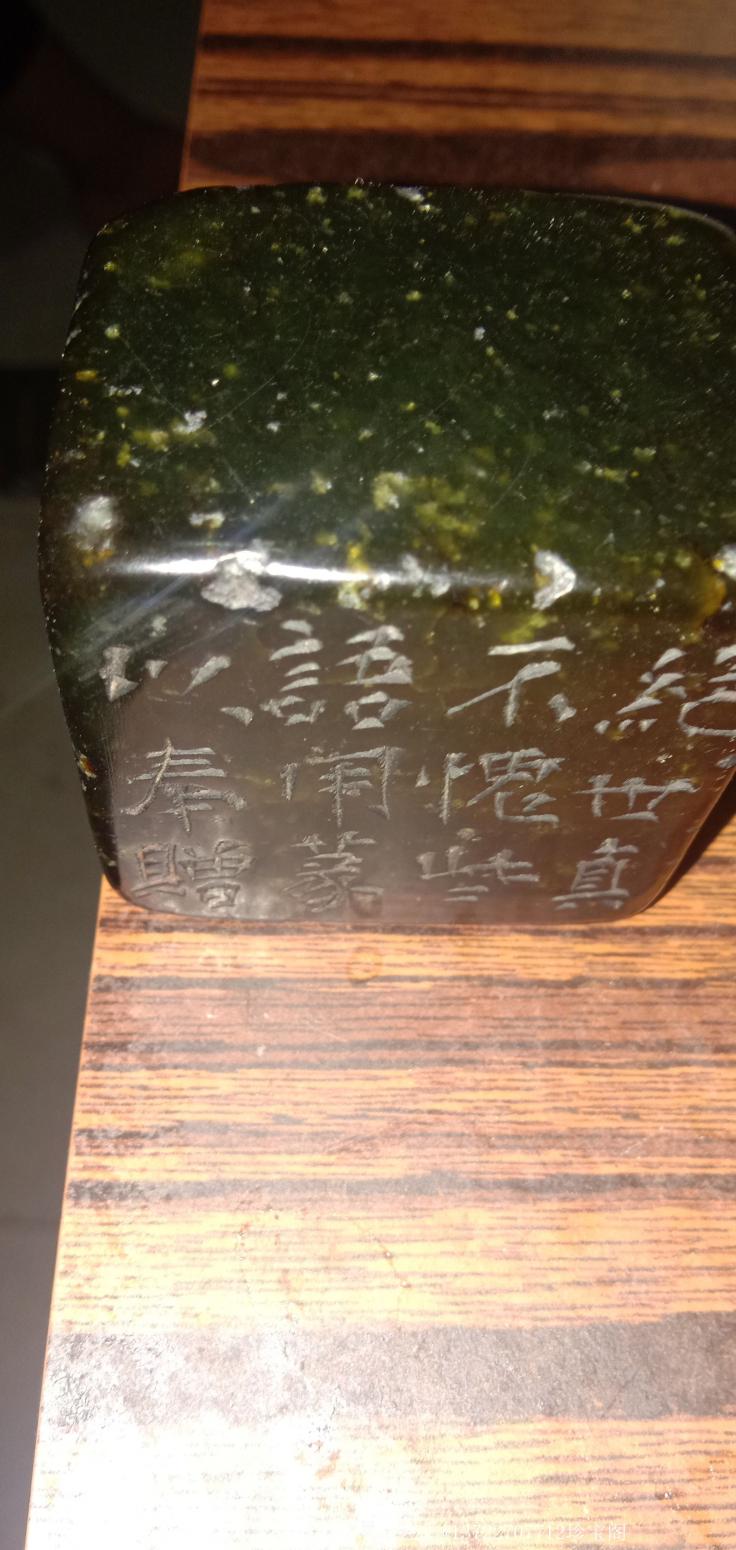 絕世真
不愧此
語開篆
以奉贈